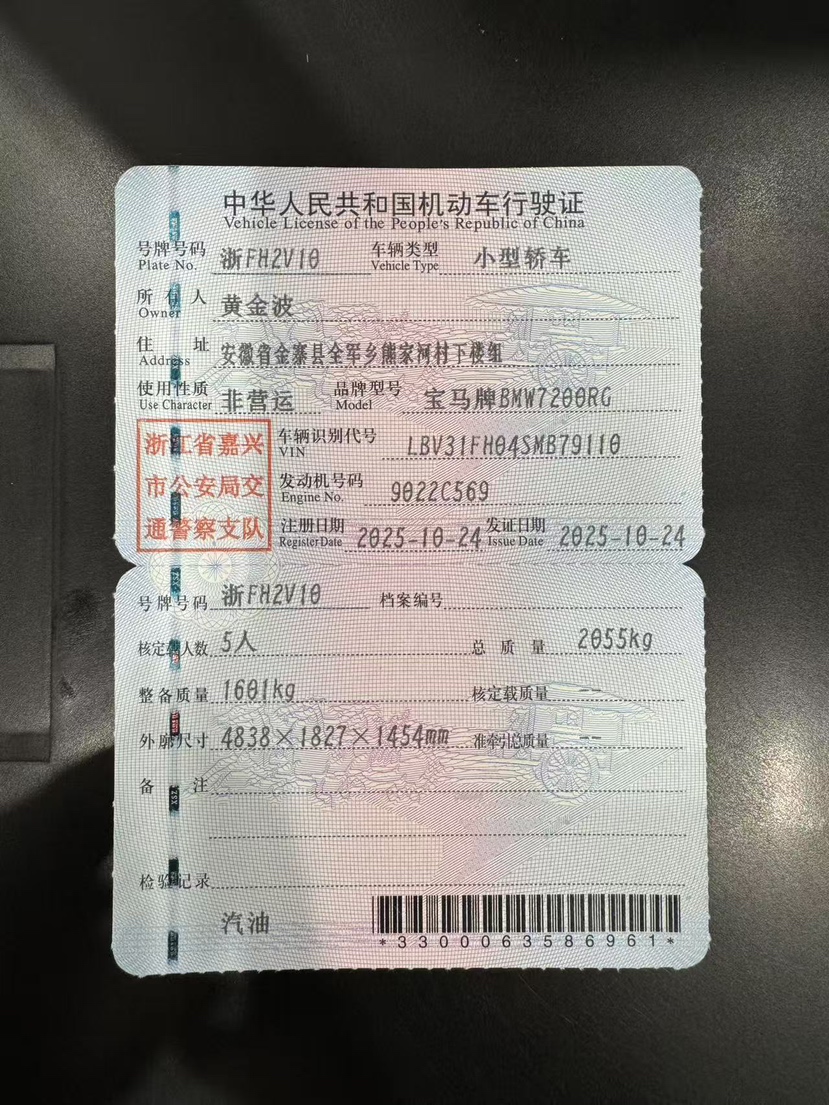 中华人民共和国机动车行驶证
Vehicle License of the People's Republic of China
号牌号码 浙FH2V10 车辆类型 小型轿车
Plate No. Vehicle Type
所有人 黄金波
Owner
住址 安徽省金寨县全军乡熊家河村下楼组
Address
使用性质 非营运 品牌型号 宝马牌BMW7200RG
Use Character Model
浙江省嘉兴
市公安局交
通警察支队
车辆识别代号 LBV31FH04SMB79110
VIN
发动机号码 9022C569
Engine No.
注册日期 2025-10-24 发证日期 2025-10-24
Register Date Issue Date
号牌号码 浙FH2V10 档案编号
核定载人数 5人 总质量 2055kg
整备质量 1601kg 核定载质量 --
外廓尺寸 4838×1827×1454mm 准牵引总质量 --
备注
检验记录
汽油
*3300063586961*